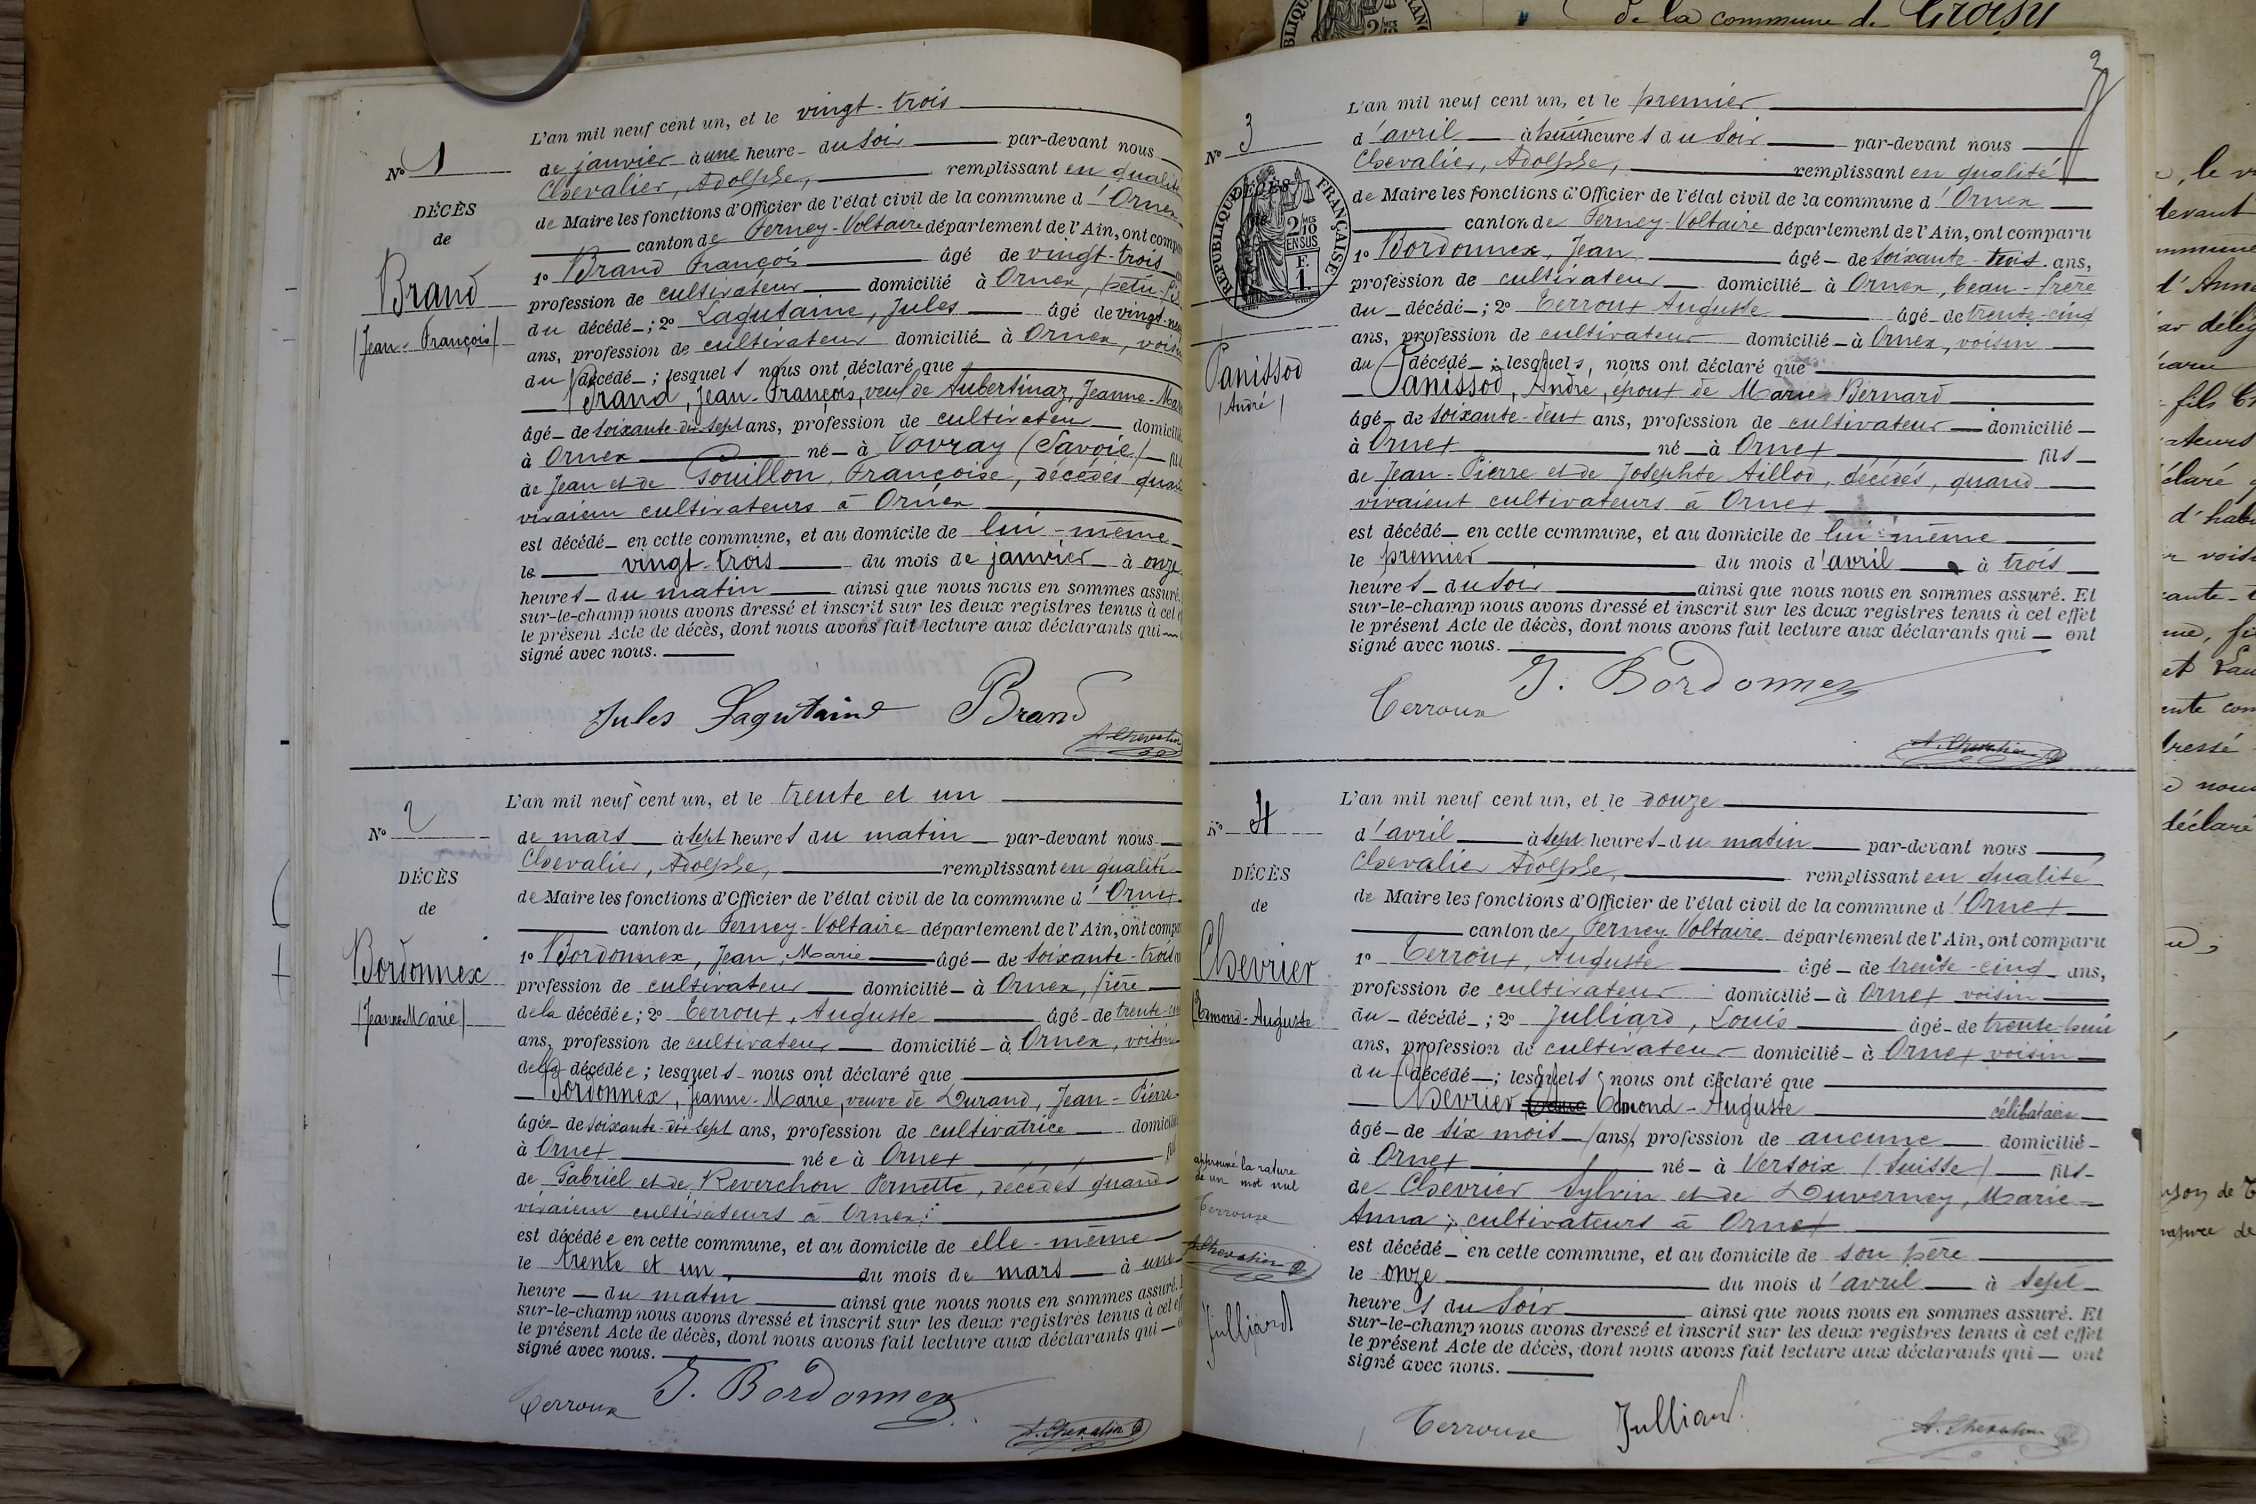 de la commune de Croisy
No 1
DÉCÈS
de
Brand
(Jean-François)
L'an mil neuf cent un, et le vingt-trois
de janvier à une heure du soir par-devant nous
Chevalier, Adolphe, remplissant en qualité
de Maire les fonctions d'Officier de l'état civil de la commune d'Ornex
canton de Ferney-Voltaire département de l'Ain, ont comparu
1o Brand François âgé de vingt-trois
profession de cultivateur domicilié à Ornex, petit-fils
du décédé ; 2o Lagutaine, Jules âgé de vingt-neuf
ans, profession de cultivateur domicilié à Ornex, voisin
du décédé ; lesquels nous ont déclaré que
Brand, Jean-François, veuf de Aubertinaz, Jeanne-Marie
âgé de soixante-dix-sept ans, profession de cultivateur domicilié
à Ornex né à Vovray (Savoie) fils
de Jean et de Gouillon, Françoise, décédés quand
vivaient cultivateurs à Ornex
est décédé en cette commune, et au domicile de lui-même
le vingt-trois du mois de janvier à onze
heures du matin ainsi que nous nous en sommes assuré.
sur-le-champ nous avons dressé et inscrit sur les deux registres tenus à cet
le présent Acte de décès, dont nous avons fait lecture aux déclarants qui
signé avec nous.
Jules Lagutaine Brand
A. Chevalier
No 2
DÉCÈS
de
Bordonnex
(Jeanne-Marie)
L'an mil neuf cent un, et le trente et un
de mars à sept heures du matin par-devant nous
Chevalier, Adolphe, remplissant en qualité
de Maire les fonctions d'Officier de l'état civil de la commune d'Ornex
canton de Ferney-Voltaire département de l'Ain, ont comparu
1o Bordonnex, Jean, Marie âgé de soixante-trois
profession de cultivateur domicilié à Ornex, frère
de la décédée ; 2o Terroux, Auguste âgé de trente-cinq
ans, profession de cultivateur domicilié à Ornex, voisin
de la décédée ; lesquels nous ont déclaré que
Bordonnex, Jeanne-Marie, veuve de Durand, Jean-Pierre
âgée de soixante-dix-sept ans, profession de cultivatrice domiciliée
à Ornex née à Ornex
de Gabriel et de Reverchon Pernette, décédés quand
vivaient cultivateurs à Ornex
est décédée en cette commune, et au domicile de elle-même
le trente et un du mois de mars à une
heure du matin ainsi que nous nous en sommes assuré.
sur-le-champ nous avons dressé et inscrit sur les deux registres tenus à cet
le présent Acte de décès, dont nous avons fait lecture aux déclarants qui
signé avec nous.
Terroux J. Bordonnex
A. Chevalier
3
No 3
RÉPUBLIQUE FRANÇAISE
2/10 MES
EN SUS
F.
1.
DÉCÈS
de
Panissod
(André)
L'an mil neuf cent un, et le premier
d'avril à huit heures du soir par-devant nous
Chevalier, Adolphe, remplissant en qualité
de Maire les fonctions d'Officier de l'état civil de la commune d'Ornex
canton de Ferney-Voltaire département de l'Ain, ont comparu
1o Bordonnex, Jean âgé de soixante-trois ans,
profession de cultivateur domicilié à Ornex, beau-frère
du décédé ; 2o Terroux Auguste âgé de trente-cinq
ans, profession de cultivateur domicilié à Ornex, voisin
du décédé ; lesquels, nous ont déclaré que
Panissod, André, époux de Marie Bernard
âgé de soixante-deux ans, profession de cultivateur domicilié
à Ornex né à Ornex fils
de Jean-Pierre et de Josephte Aillod, décédés, quand
vivaient cultivateurs à Ornex
est décédé en cette commune, et au domicile de lui-même
le premier du mois d'avril à trois
heures du soir ainsi que nous nous en sommes assuré. Et
sur-le-champ nous avons dressé et inscrit sur les deux registres tenus à cet effet
le présent Acte de décès, dont nous avons fait lecture aux déclarants qui ont
signé avec nous.
Terroux J. Bordonnex
A. Chevalier
No 4
DÉCÈS
de
Chevrier
(Edmond-Auguste
approuvé la rature
de un mot nul
Terroux
A. Chevalier
Julliard
L'an mil neuf cent un, et le douze
d'avril à sept heures du matin par-devant nous
Chevalier Adolphe, remplissant en qualité
de Maire les fonctions d'Officier de l'état civil de la commune d'Ornex
canton de Ferney-Voltaire département de l'Ain, ont comparu
1o Terroux, Auguste âgé de trente-cinq ans,
profession de cultivateur domicilié à Ornex voisin
du décédé ; 2o Julliard, Louis âgé de trente-huit
ans, profession de cultivateur domicilié à Ornex voisin
du décédé ; lesquels nous ont déclaré que
Chevrier Edmond-Auguste célibataire
âgé de six mois (ans), profession de aucune domicilié
à Ornex né à Versoix (Suisse) fils
de Chevrier Sylvin et de Duverney, Marie
Anna ; cultivateurs à Ornex
est décédé en cette commune, et au domicile de son père
le onze du mois d'avril à sept
heures du soir ainsi que nous nous en sommes assuré. Et
sur-le-champ nous avons dressé et inscrit sur les deux registres tenus à cet effet
le présent Acte de décès, dont nous avons fait lecture aux déclarants qui ont
signé avec nous.
Terroux Julliard
A. Chevalier